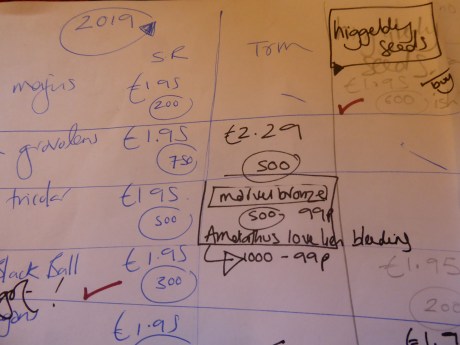 2019
SR
Tom
higgeldy
seeds
majus
£1.95
200
£1.95
600
buy
graveolens
£1.95
750
£2.29
500
tricolor
£1.95
500
marvel bronze
500 99p
Amaranthus love lies bleeding
1000 - 99p
Black Ball
£1.95
300
£1.95
200
£1.95
£1.7